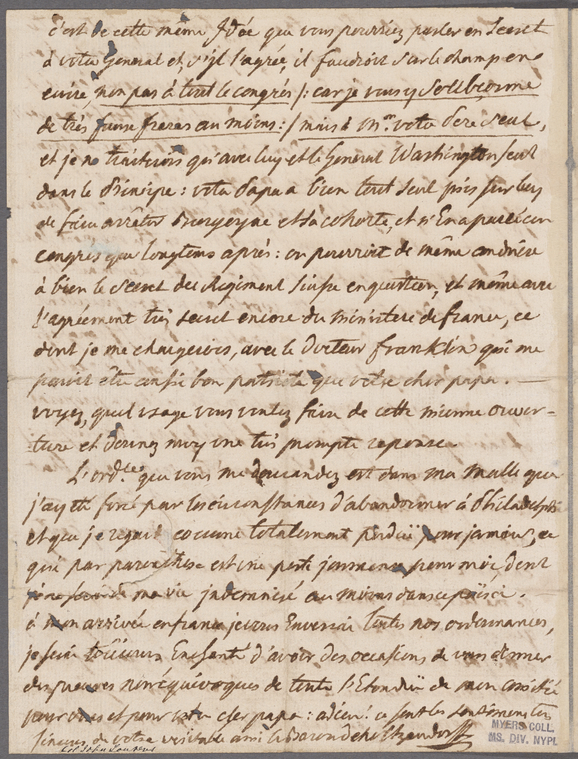 c'est de cette même Idée que vous pourriez parler en Secret
à votre General et, s'il l'agrée, il faudroit sur le champ en
ecrire, non pas à tout le congrès /: car je vous y soubçonne
de très faux freres au moins: / mais à Mr. votre Pere seul,
et je ne traiterois qu'avec luy et le General Washington seul
dans le Principe: votre Papa a bien tout seul pris sur luy
de faire arrêter Bourgoyne et sa cohorte, et n'En a parlé au
congrès que longtems après: on pourroit de même conduire
à bien le secret du Regiment Suisse en question, et même avec
l'agrément très secret encore du ministere de france, ce
dont je me chargerois, avec le Docteur franklin qui me
paroit être aussi bon patriote que votre cher papa. —
voyez quel usage vous voulez faire de cette mienne ouver-
ture et donnez moy une très prompte reponse.
L'ordce. que vous me demandez est dans ma malle que
j'ay été forcé par les circonstances d'abandonner à Philadelphie
et que je regarde comme totalement perduë pour jamais, ce
qui par parenthese est une perte pour moi, dont
je ne ma vie indemnisé au moins dans ce païs ci.
à mon arrivée en france je vous Enverrai toutes nos ordonnances,
je serai toûjours Enchanté d'avoir des occasions de vous donner
des preuves non équivoques de toute l'Etenduë de mon amitié
pour vous et pour votre cher papa: adieu! ce sont les sentimens très
sincères de votre veritable ami le Baron de holtzendorff
Col. John Laurens
MYERS COLL.
MS. DIV. NYPL